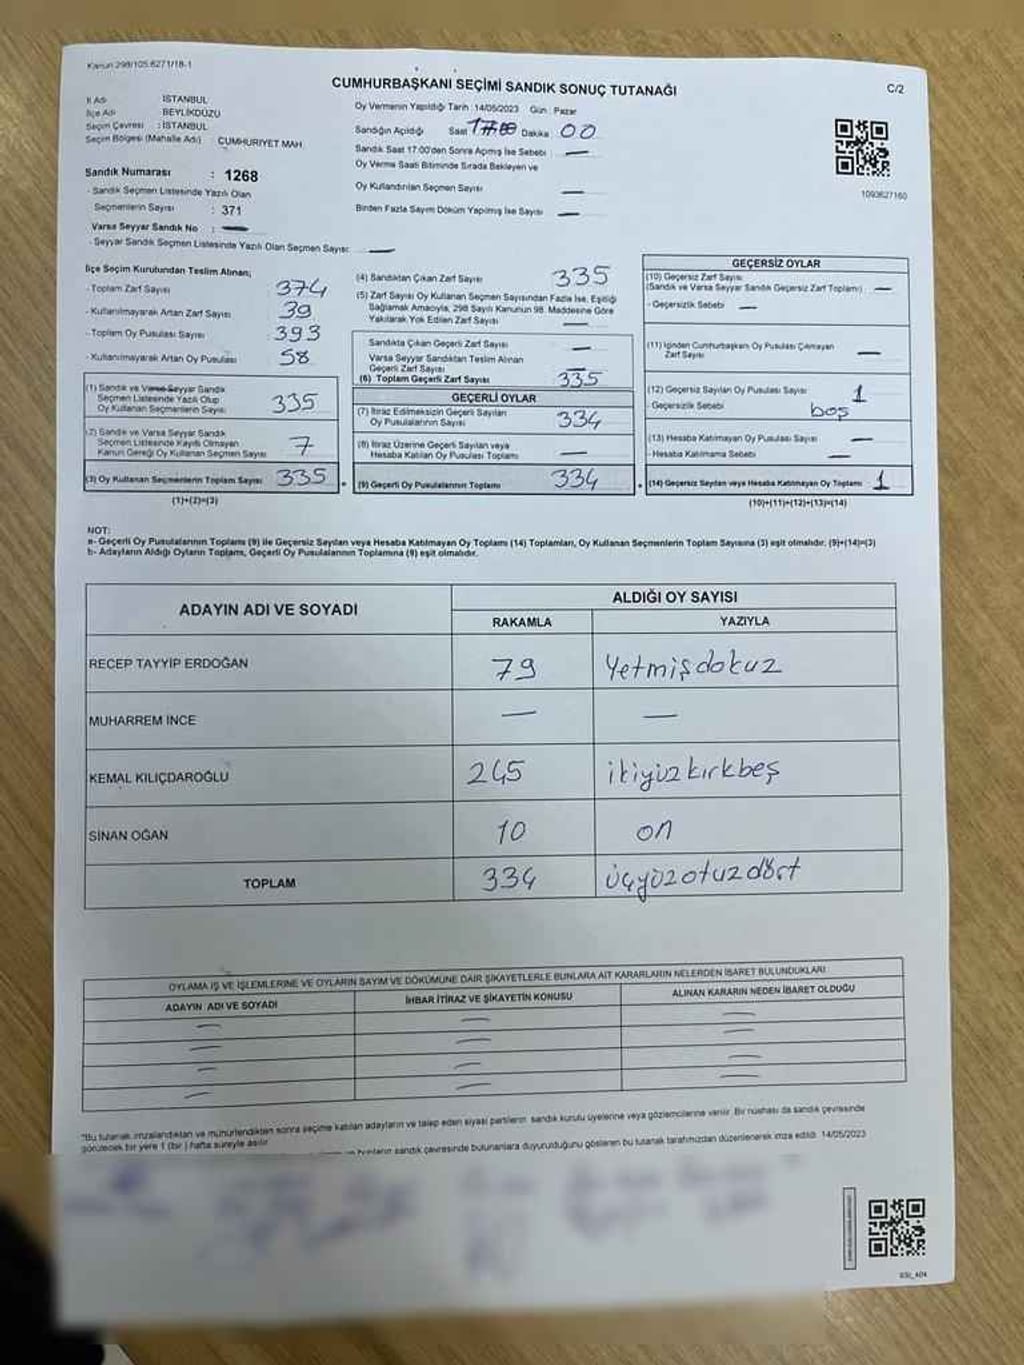 Kanun 298/105.6271/18-1
CUMHURBAŞKANI SEÇİMİ SANDIK SONUÇ TUTANAĞI
C/2
İl Adı İSTANBUL
İlçe Adı BEYLİKDÜZÜ
Seçim Çevresi : İSTANBUL
Seçim Bölgesi (Mahalle Adı) CUMHURİYET MAH.
Sandık Numarası : 1268
- Sandık Seçmen Listesinde Yazılı Olan
Seçmenlerin Sayısı : 371
Varsa Seyyar Sandık No : —
- Seyyar Sandık Seçmen Listesinde Yazılı Olan Seçmen Sayısı: —
Oy Vermenin Yapıldığı Tarih : 14/05/2023 Gün : Pazar
Sandığın Açıldığı Saat 17:00 Dakika 00
Sandık Saat 17:00'den Sonra Açmış İse Sebebi : —
Oy Verme Saati Bitiminde Sırada Bekleyen ve
Oy Kullandırılan Seçmen Sayısı —
Birden Fazla Sayım Döküm Yapılmış İse Sayısı —
1090627160
İlçe Seçim Kurulundan Teslim Alınan;
- Toplam Zarf Sayısı 374
- Kullanılmayarak Artan Zarf Sayısı 39
- Toplam Oy Pusulası Sayısı 393
- Kullanılmayarak Artan Oy Pusulası 58
(1) Sandık ve Varsa Seyyar Sandık
Seçmen Listesinde Yazılı Olup
Oy Kullanan Seçmenlerin Sayısı 335
(2) Sandık ve Varsa Seyyar Sandık
Seçmen Listesinde Kayıtlı Olmayan
Kanun Gereği Oy Kullanan Seçmen Sayısı 7
(3) Oy Kullanan Seçmenlerin Toplam Sayısı 335
(1)+(2)=(3)
(4) Sandıktan Çıkan Zarf Sayısı 335
(5) Zarf Sayısı Oy Kullanan Seçmen Sayısından Fazla İse, Eşitliği
Sağlamak Amacıyla, 298 Sayılı Kanunun 98. Maddesine Göre
Yakılarak Yok Edilen Zarf Sayısı —
Sandıkta Çıkan Geçerli Zarf Sayısı —
Varsa Seyyar Sandıktan Teslim Alınan
Geçerli Zarf Sayısı —
(6) Toplam Geçerli Zarf Sayısı 335
GEÇERLİ OYLAR
(7) İtiraz Edilmeksizin Geçerli Sayılan
Oy Pusulalarının Sayısı 334
(8) İtiraz Üzerine Geçerli Sayılan veya
Hesaba Katılan Oy Pusulası Toplamı —
(9) Geçerli Oy Pusulalarının Toplamı 334
GEÇERSİZ OYLAR
(10) Geçersiz Zarf Sayısı
(Sandık ve Varsa Seyyar Sandık Geçersiz Zarf Toplamı) —
- Geçersizlik Sebebi —
(11) İçinden Cumhurbaşkanı Oy Pusulası Çıkmayan
Zarf Sayısı —
(12) Geçersiz Sayılan Oy Pusulası Sayısı 1
- Geçersizlik Sebebi boş
(13) Hesaba Katılmayan Oy Pusulası Sayısı —
- Hesaba Katılmama Sebebi —
(14) Geçersiz Sayılan veya Hesaba Katılmayan Oy Toplamı 1
(10)+(11)+(12)+(13)=(14)
NOT:
a- Geçerli Oy Pusulalarının Toplamı (9) ile Geçersiz Sayılan veya Hesaba Katılmayan Oy Toplamı (14) Toplamları, Oy Kullanan Seçmenlerin Toplam Sayısına (3) eşit olmalıdır. (9)+(14)=(3)
b- Adayların Aldığı Oyların Toplamı, Geçerli Oy Pusulalarının Toplamına (9) eşit olmalıdır.
ADAYIN ADI VE SOYADI
ALDIĞI OY SAYISI
RAKAMLA YAZIYLA
RECEP TAYYİP ERDOĞAN 79 Yetmişdokuz
MUHARREM İNCE — —
KEMAL KILIÇDAROĞLU 245 ikiyüzkırkbeş
SİNAN OĞAN 10 on
TOPLAM 334 üçyüzotuzdört
OYLAMA İŞ VE İŞLEMLERİNE VE OYLARIN SAYIM VE DÖKÜMÜNE DAİR ŞİKAYETLERLE BUNLARA AİT KARARLARIN NELERDEN İBARET BULUNDUKLARI
ADAYIN ADI VE SOYADI İHBAR İTİRAZ VE ŞİKAYETİN KONUSU ALINAN KARARIN NEDEN İBARET OLDUĞU
"Bu tutanak imzalandıktan ve mühürlendikten sonra seçime katılan adayların ve talep eden siyasi partilerin sandık kurulu üyelerine veya gözlemcilerine verilir. Bir nüshası da sandık çevresinde
görülecek bir yere 1 (bir) hafta süreyle asılır.
bunların sandık çevresinde bulunanlara duyurulduğunu gösteren bu tutanak tarafımızdan düzenlenerek imza edildi. 14/05/2023